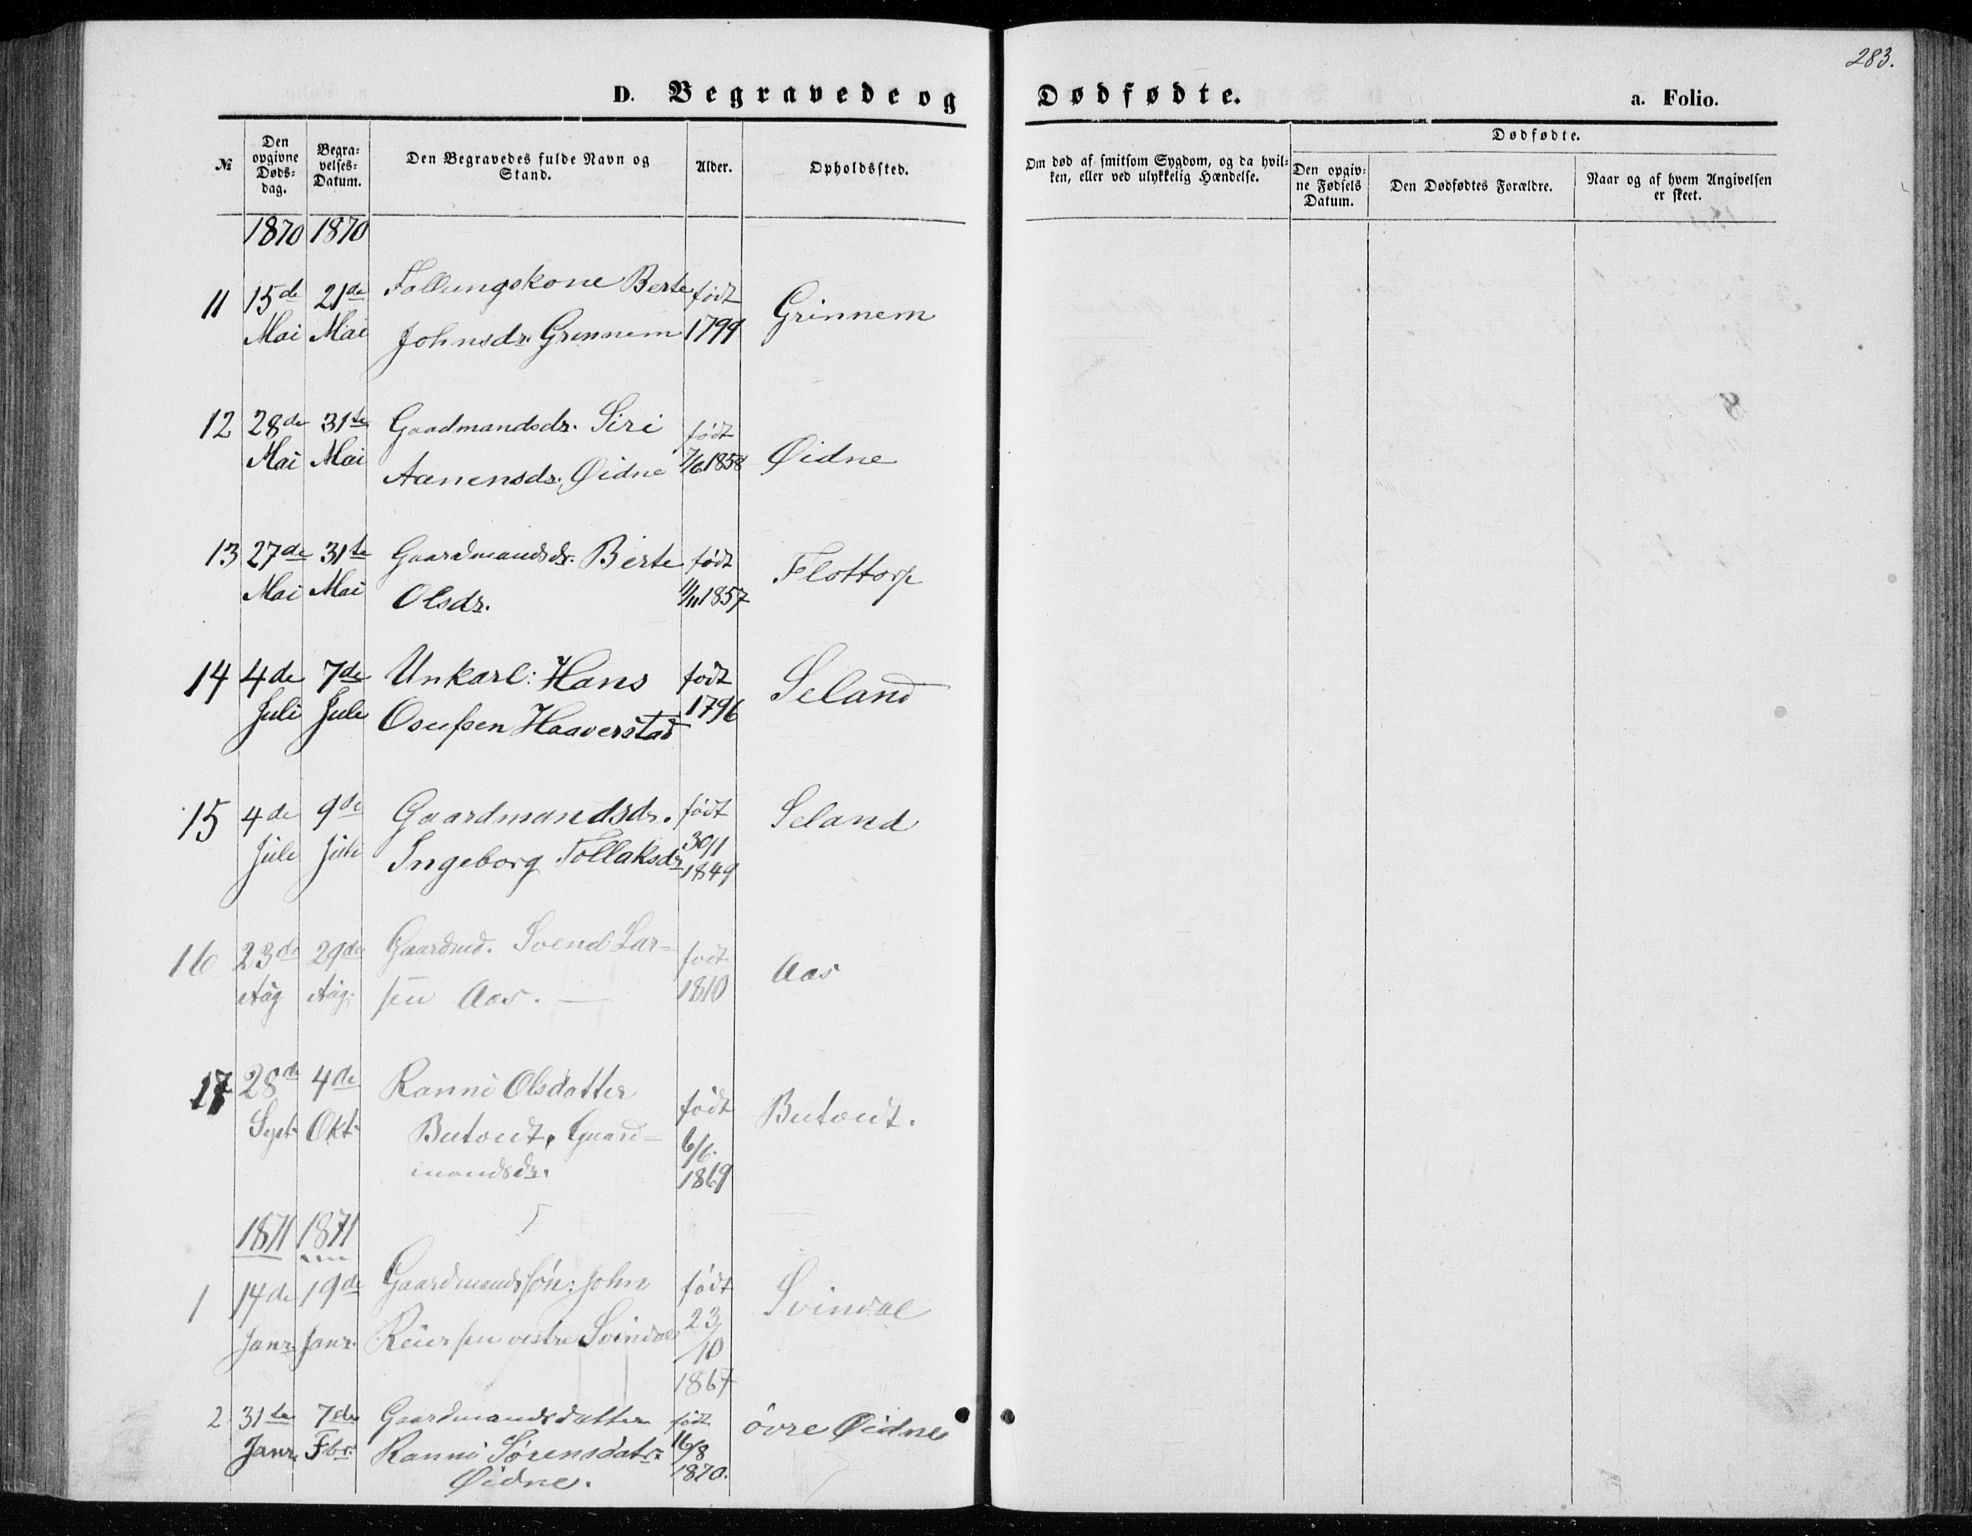 283.
D. Begravede og Dødfødte. a. Folio.
№
Den opgivne Døds-dag.
Begra-velses-Datum.
Den Begravedes fulde Navn og Stand.
Alder.
Opholdssted.
Om død af smitsom Sygdom, og da hvil-ken, eller ved ulykkelig Hændelse.
Dødfødte.
Den opgiv-ne Fødsels Datum.
Den Dødfødtes Forældre.
Naar og af hvem Angivelsen er skeet.
1870 1870
11 15de 21de Follungskone Berte født Grinnem
Mai Mai Johnsdr. Grinnem 1799
12 28de 31te Gaadmandsdr. Siri født
Mai Mai Aanensdr. Øidne 7/6 1858 Øidne
13 27de 31te Gaardmandsdr. Berte født Flottorp
Mai Mai Olsdr. 11/11 1857
14 4de 7de Unkarl: Hans født Seland
Juli Juli Osufsen Haaverstad 1796
15 4de 9de Gaardmandsdr. født Seland
Juli Juli Ingeborg Tollaksdr 30/1
1849
16 23de 29de Gaardmd. Svend Lar= født Aas
Aug Aug. sen Aas. — 1810
17 28de 4de Ranni Olsdatter født Butvedt.
Sept. Okt. Butvedt, Gaard= 6/6.
mandsdr. 1869
1871 1871
1 14de 19de Gaardmandssøn: John født Svindal
Janr. Janr. Reiersen vestre Svindal 23/10
1867
2 31te 7de Gaardmandsdatter født øvre Øidne
Janr. Fbr. Ranni Sørensdatr. 16/8
Øidne. 1870.